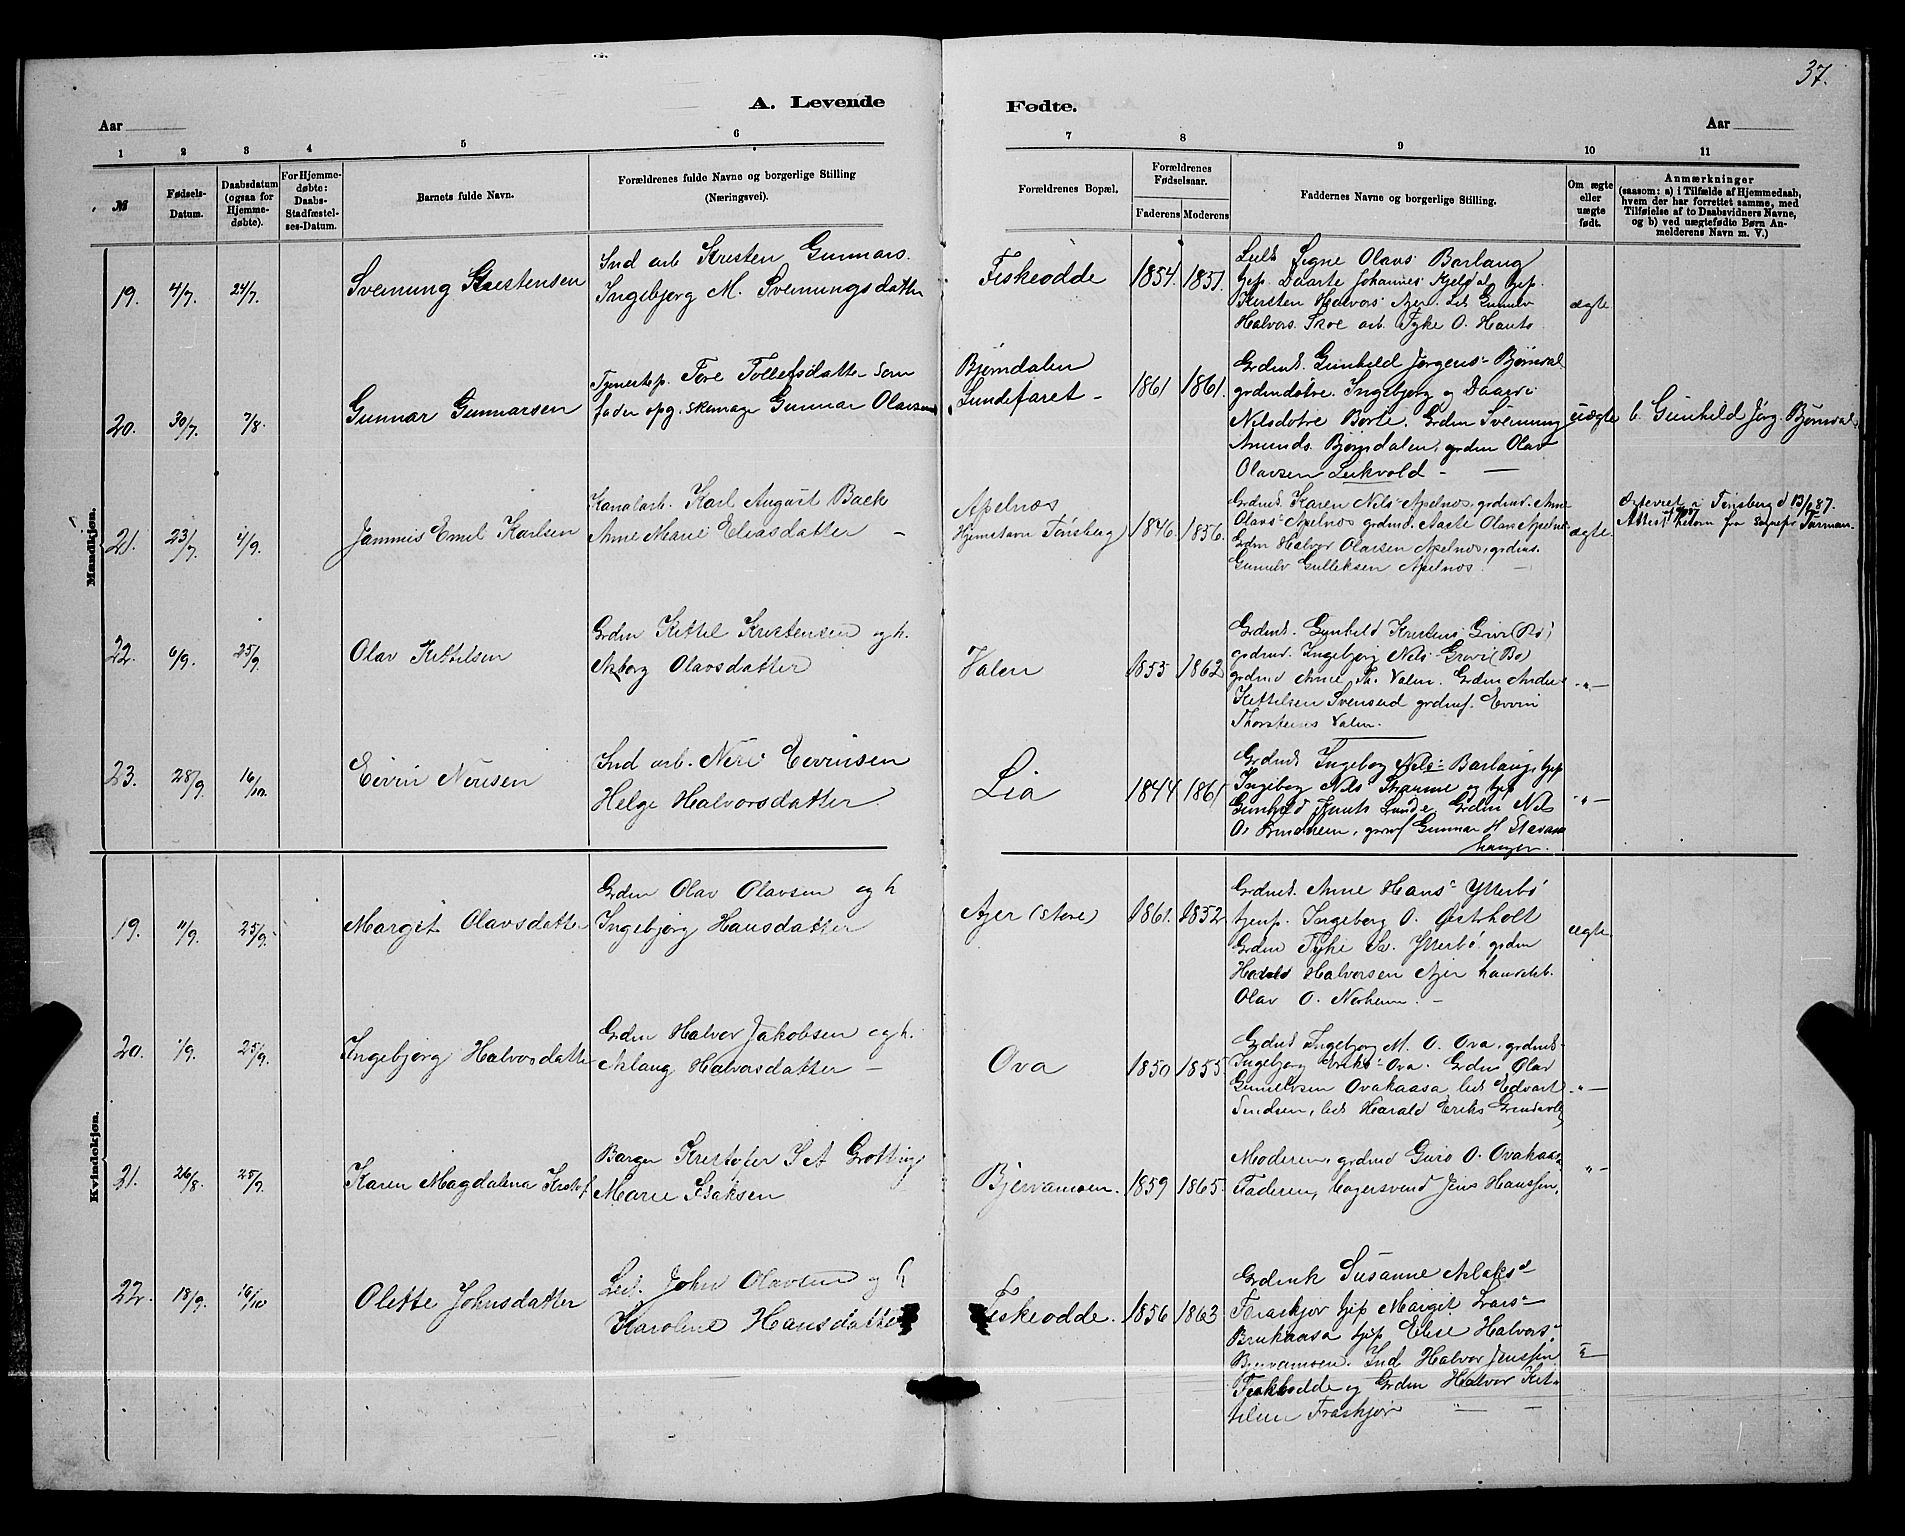 37.
A. Levende
Fødte.
Aar
Aar
1 2 3 4 5 6 7 8 9 10 11
№
Fødsels-Datum.
Daabsdatum (ogsaa for Hjemmedøbte).
For Hjemmedøbte: Daabs-Stadfæstelses-Datum.
Barnets fulde Navn.
Forældrenes fulde Navne og borgerlige Stilling (Næringsvei).
Forældrenes Bopæl.
Forældrenes Fødselsaar.
Faderens Moderens
Faddernes Navne og borgerlige Stilling.
Om ægte eller uægte født.
Anmærkninger
(saasom: a) i Tilfælde af Hjemmedaab,
hvem der har forrettet samme, med
Tilføielse af to Daabsvidners Navne,
og b) ved uægtefødte Børn An-
melderens Navn m. V.)
Mandkjøn.
19. 4/7. 24/7. Svenung Kristensen
Ind arb Kristen Gunnars.
Ingebjorg M. Svenungsdatter
Fiskeodde 1854. 1851.
Signe Olavs Barlaug
tjp Daarte Johannes tjp.
Kersten Halvors Ajer. Gunulv
Halvors. Skoe arb. Tyke O. Hauto
ægte
20. 30/7. 7/8. Gunnar Gunnarsen
Tjenestep. Tore Tollefsdatter som
fader opg. skomager Gunnar Olavsen
Bjørndalen
Lundefaret - 1861 1861.
Grdmd. Gunhild Jørgens- Bjørndal
grdmdøtre. Ingebjorg og Daagri
Nilsdøtre Borte. Grdm Svenung
Amunds. Bjørndalen, grdm Olav
Olavsen Leikvold -
uægte b. Gunhild Jørg. Bjørndal
21. 23/7. 4/9. Jammis Emil Karlsen
Kanalarb. Karl August Back
Anne Marie Eliasdatter -
Apelnos
Hjemstavn Tønsberg 1846. 1856.
Grdmd. Karen Nils- Apelnos, grdmd. Anne
Olavs- Apelnos grdmd. Aaste Olav Apelnos
Grdm Halvor Olavsen Apelnos, grdms.
Gunulv Gulleksen Apelnos.
ægte.
i Tønsberg d 13/6 87.
Attest herom fra sognepr
22. 6/9. 25/9. Olav Kittilsen
Grdm Kittil Kristensen og h.
Asborg Olavsdatter
Valen 1853 1862
Grdmd. Gunhild Kristens Grivi (Bø)
grdmd. Ingebjorg Nils- Gravi (Bø)
grdmd Anne Th. Valen. Grdm Anders
Kittilsen Svensud grdmf. Evin
Thorsteins Valen.
-"-
23. 28/9. 16/10. Eivin Nerisen
Ind arb. Neri Eivinsen
Helge Halvorsdatter
Lia 1844 1861
Grdmd. Ingebog Nels- Barlaug, tjp
Ingeborg Nils Straume og tjp
Gunhild Knuts Lunde, Grdm Nils
O. Lindheim, grdmf Gunnar H Stavan
hauger.
-"-
Kvindekjøn.
19. 11/9. 25/9. Margit Olavsdatter
Grdm Olav Olavsen og h
Ingebjørg Hansdatter
Ajer (store) 1861. 1852
Grdmd. Anne Hans- Ytterbø
tjenp. Ingeborg O. Østerholt
Grdm Tyke Sv. Ytterbø, grdm
Harald Halvorsen Ajer
Olav O. Norheim. -
ægte.
20. 1/9. 25/9. Ingebjørg Halvorsdatter
Grdm Halvor Jakobsen og h.
Aslaug Halvorsdatter -
Ova 1850 1855
Grdmd Ingebjorg M. O. Ova, grdmd-
Ingebjorg Eriks- Ova. Grdm Olav
Gunulvsen Ovakaasa leil Edvart
leil Harald Eriks
-"-
21. 26/8. 25/9. Karen Magdalena Kristof
Barger Kristofer S A Grotting
Marie Isaksen
Bjervamoen. 1859 1865.
Moderen, grdmd Guro O. Ovakaasa
Faderen, bagersvend Jens Hanssen.
-"-
22. 18/9. 16/10 Olette Johnsdatter
Leil. John Olavsen og h
Karoline Hansdatter
Fiskeodde. 1856 1863
Grdenk Susanne Aslaks-
Fraskjør tjp Margit Lars-
Brukaasa tjp Elise Halvors-
Bjervamoen. Ind Halvor Jenssen
Fiskeodde og Grdm Halvor Kit-
tilsen Fraskjør -"-